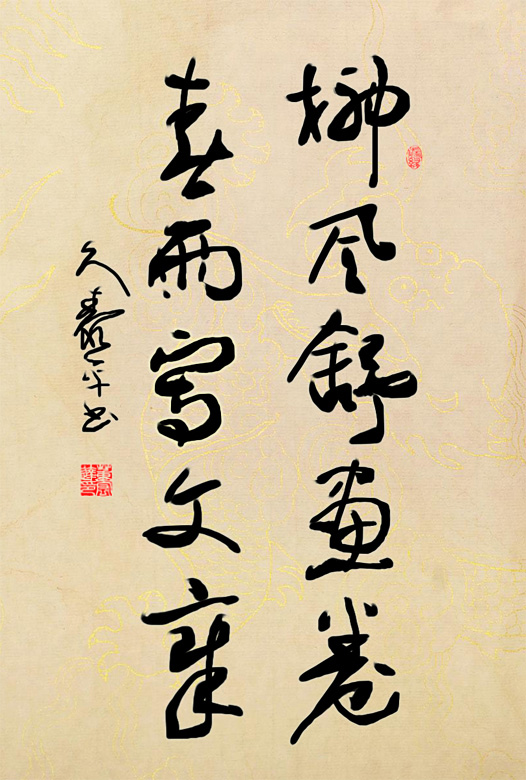 柳风舒画卷
春雨写文章